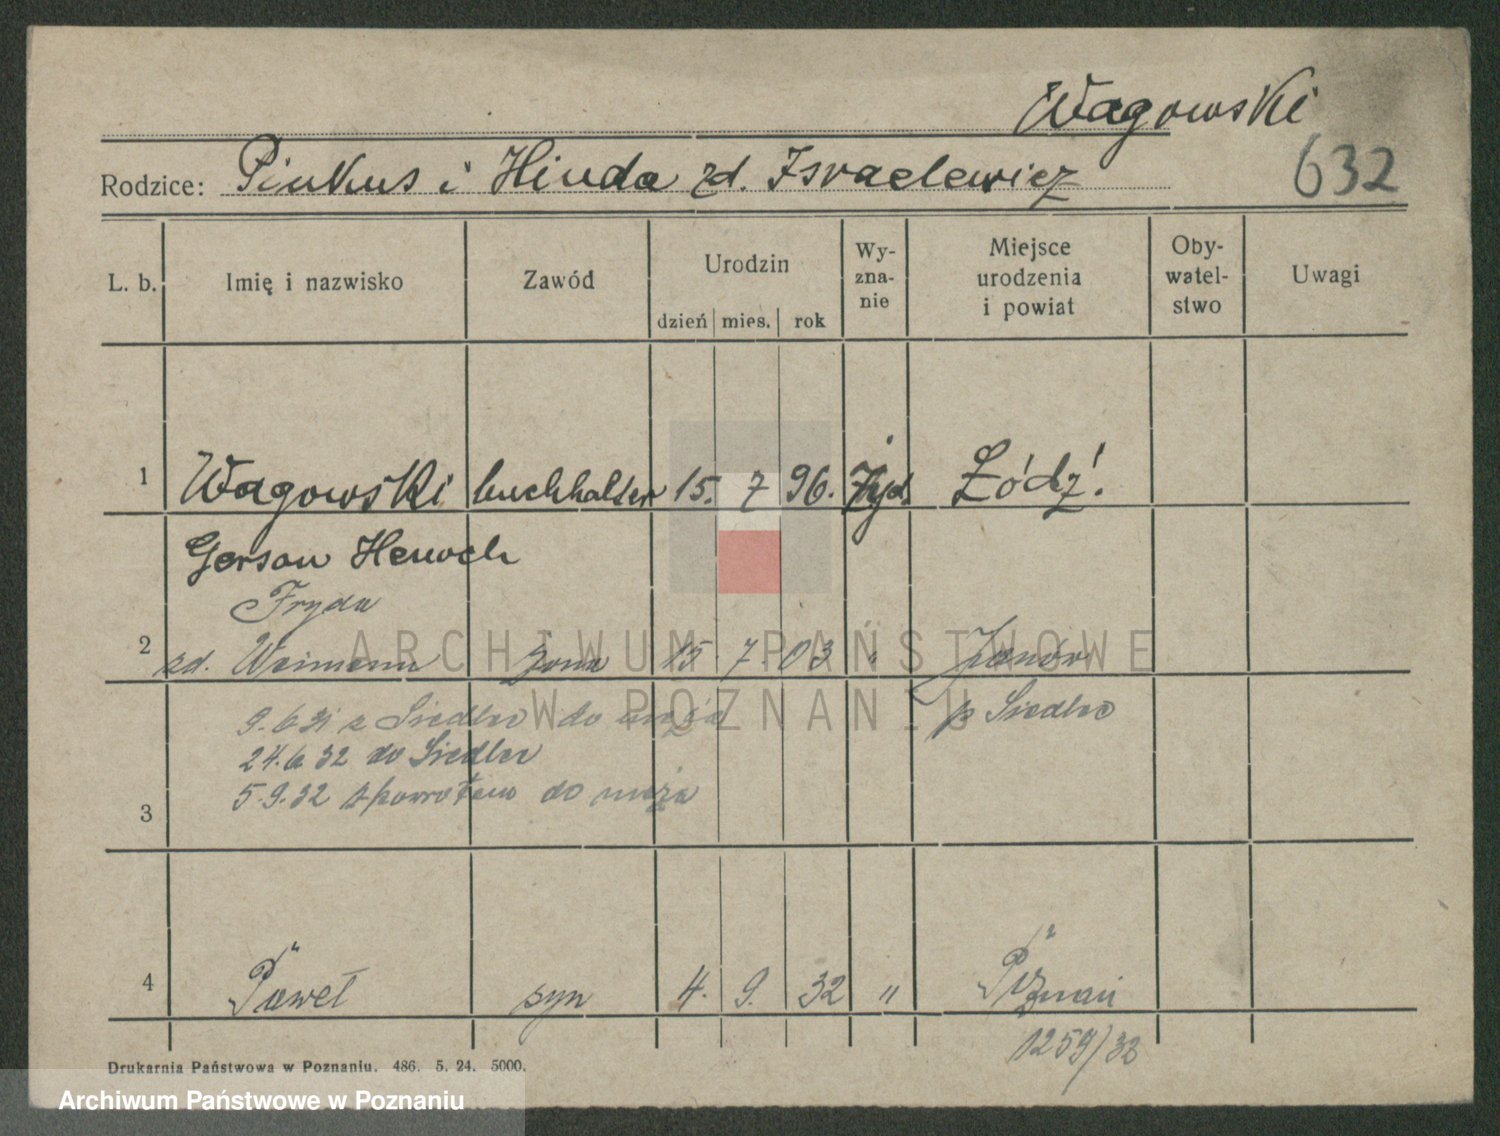 Wagowski
Rodzice: Pinkus i Hinda zd. Israelewicz
632
L. b. Imię i nazwisko Zawód Urodzin dzień mies. rok Wy-zna-nie Miejsce urodzenia i powiat Oby-watel-stwo Uwagi
1 Wagowski buchhalter 15. 7 96. Żyd. Łódź!
Gerson Henoch
Fryda
2 zd. Weimann żona 15. 7. 03 " Janów
9.6.31 z Siedlec do męża p Siedlce
24.6.32 do Siedlec
5.9.32 zpowrotem do męża
3
4 Paweł syn 4. 9. 32 " Poznań
1259/32
Drukarnia Państwowa w Poznaniu. 486. 5. 24. 5000.
ARCHIWUM PAŃSTWOWE
W POZNANIU
Archiwum Państwowe w Poznaniu